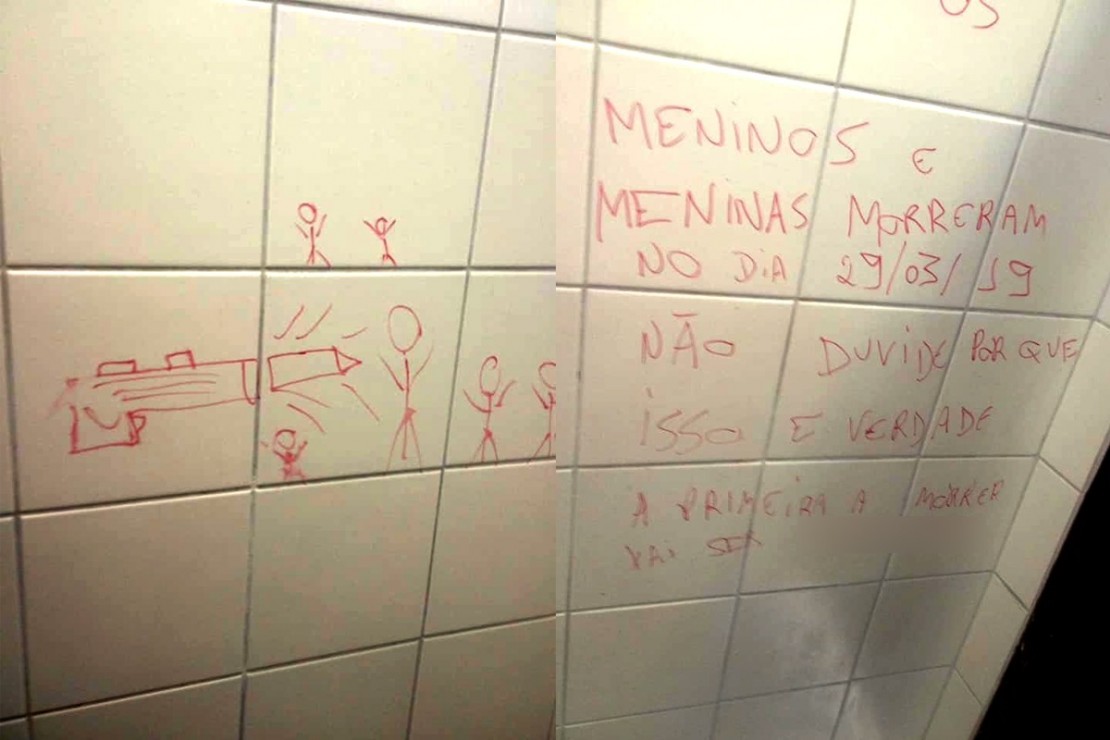 OS
MENINOS E
MENINAS MORRERAM
NO DIA 29/03/19
NÃO DUVIDE POR QUE
ISSO E VERDADE
A PRIMEIRA A MORRER
VAI SER